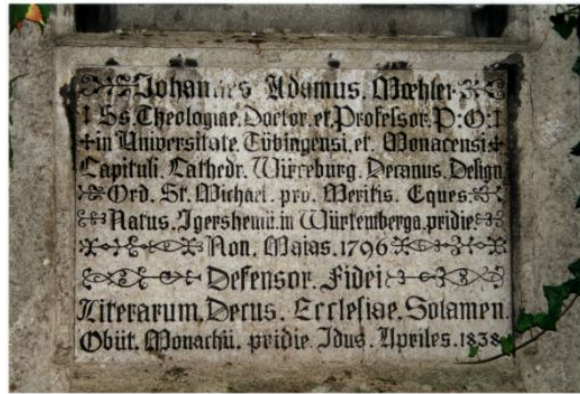 Johannes Adamus. Mœhler
Ss. Theologiae. Doctor. et. Professor. P:O:
in Universitate. Tübingensi. et. Monacensi
Capituli. Cathedr. Wirceburg. Decanus. Design.
Ord. St. Michael. pro. Meritis. Eques.
Natus. Igershemii. in Würtemberga. pridie.
Non. Maias. 1796
Defensor. Fidei
Literarum. Decus. Ecclesiae. Solamen.
Obiit. Monachii. pridie. Idus. Apriles. 1838